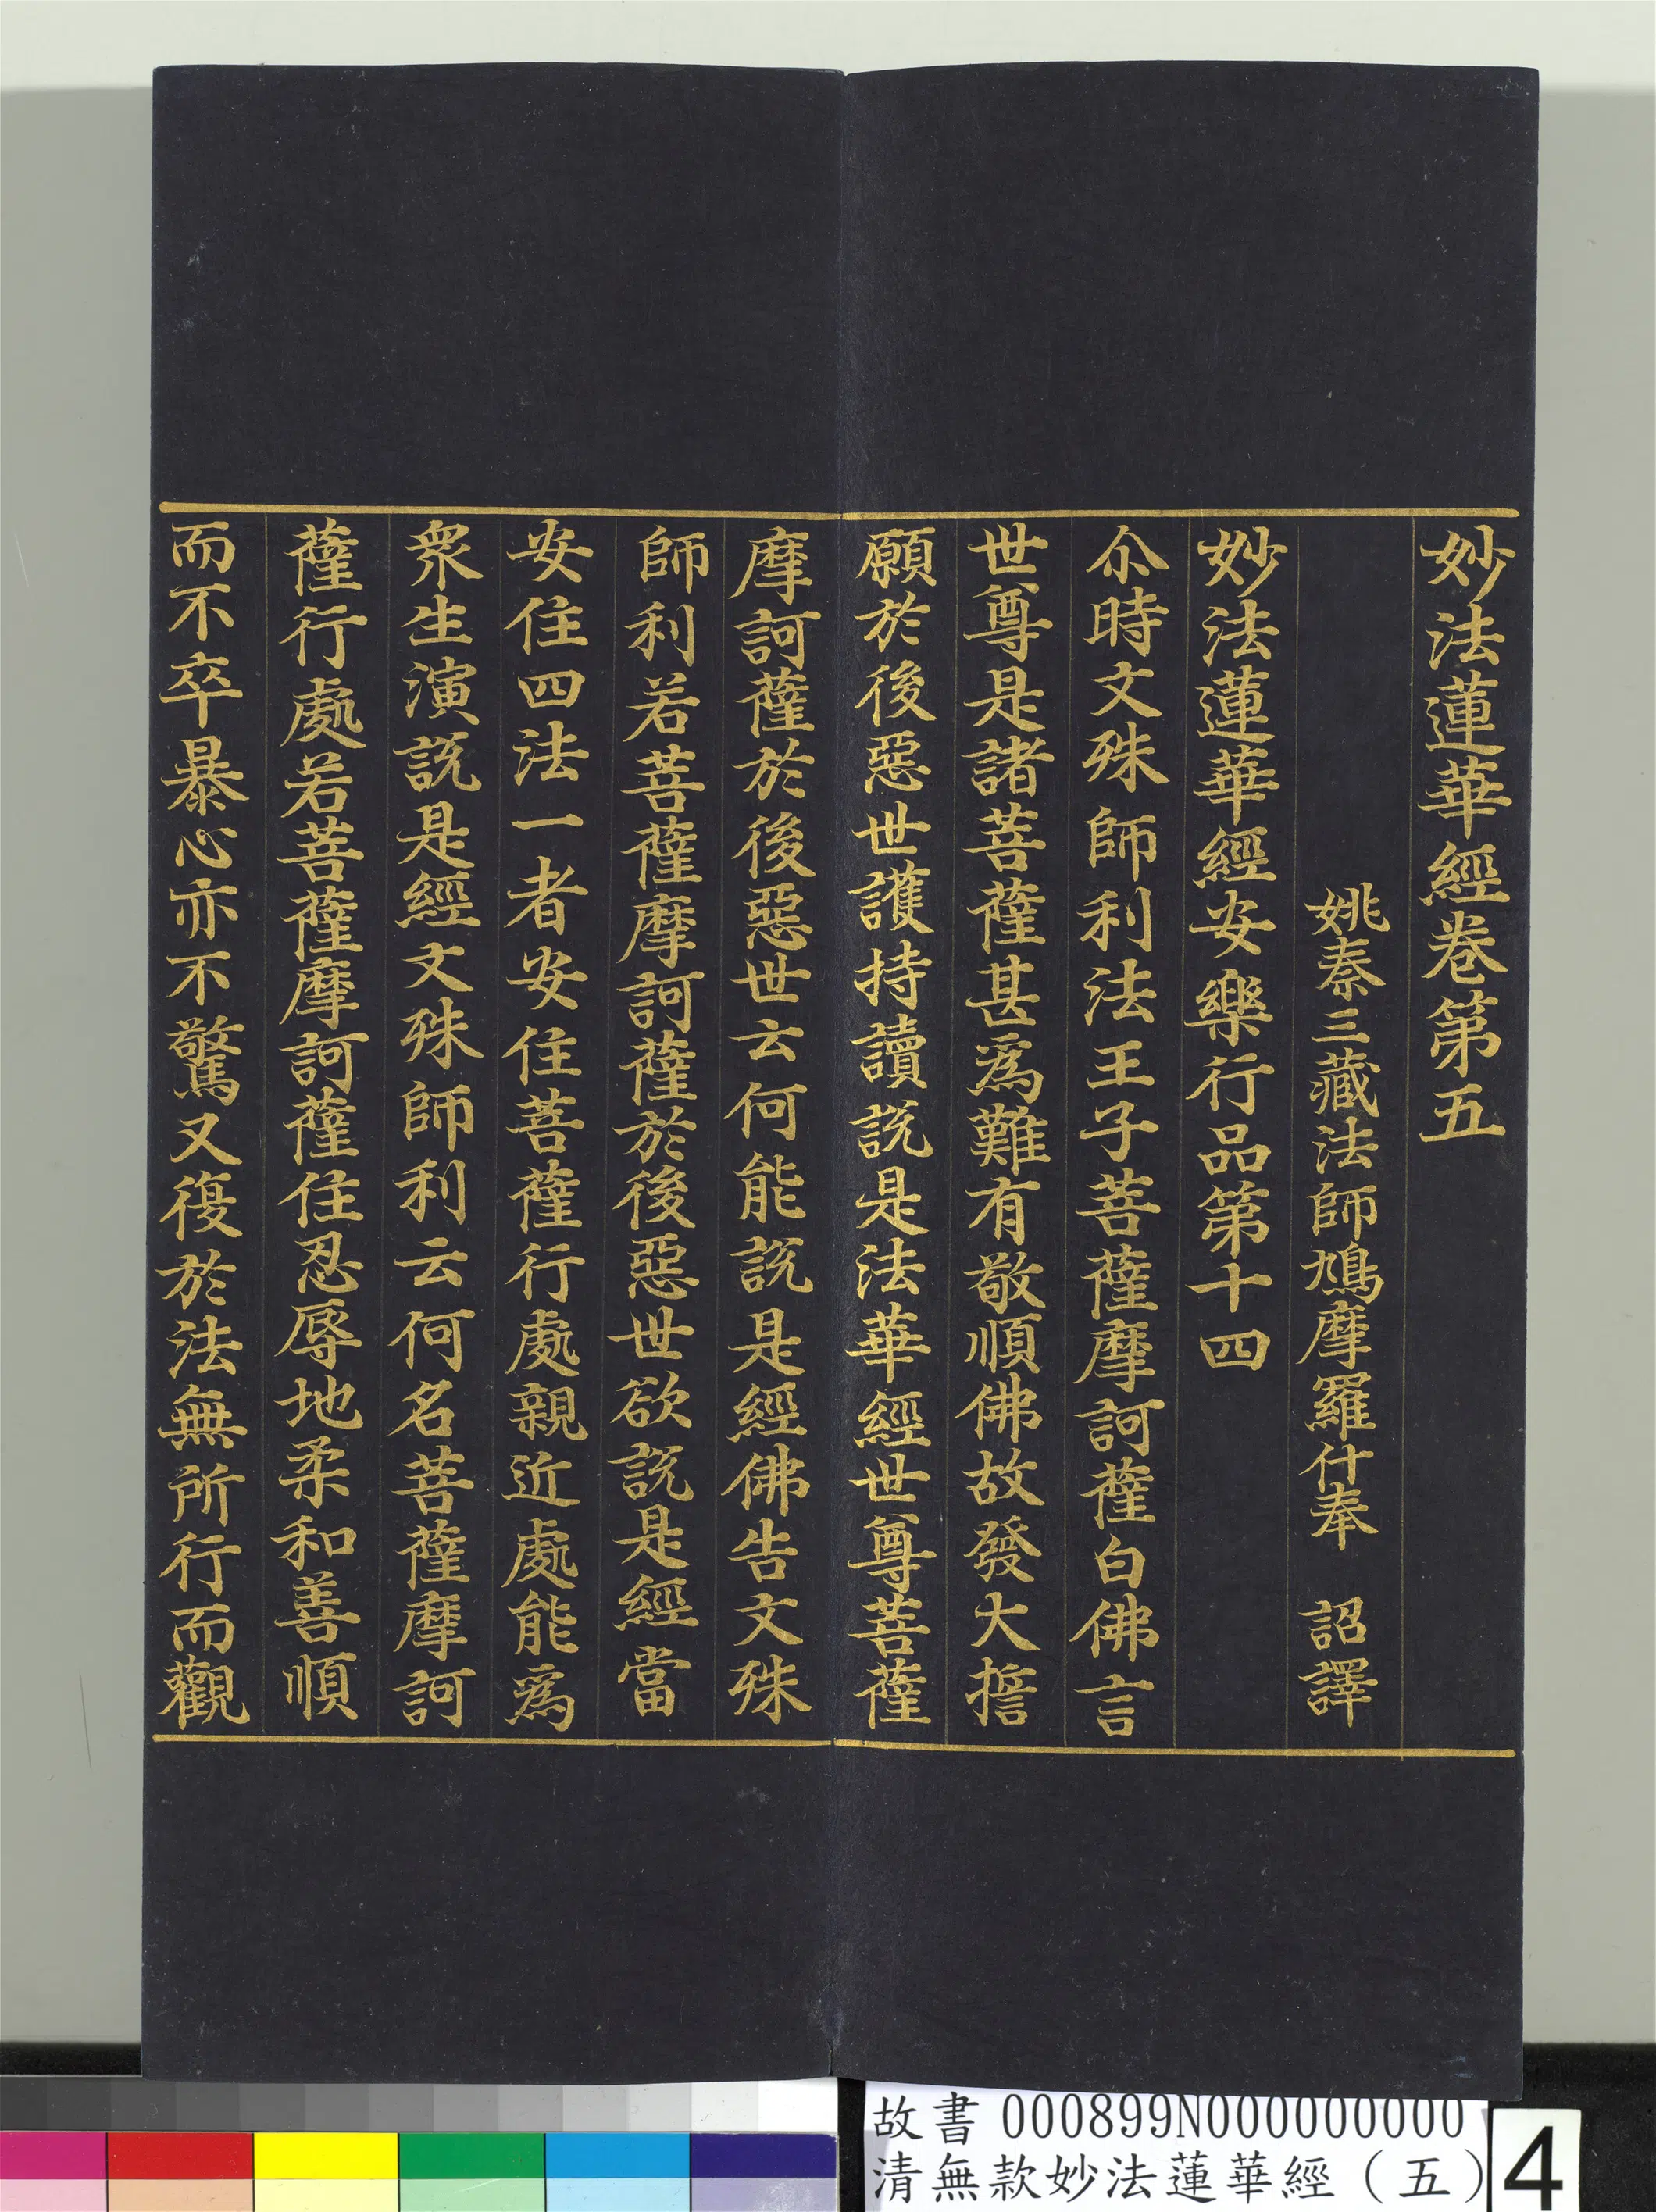 妙法蓮華經卷第五
姚秦三藏法師鳩摩羅什奉　詔譯
妙法蓮華經安樂行品第十四
尒時文殊師利法王子菩薩摩訶薩白佛言
世尊是諸菩薩甚為難有敬順佛故發大誓
願於後惡世護持讀說是法華經世尊菩薩
摩訶薩於後惡世云何能說是經佛告文殊
師利若菩薩摩訶薩於後惡世欲說是經當
安住四法一者安住菩薩行處親近處能為
衆生演說是經文殊師利云何名菩薩摩訶
薩行處若菩薩摩訶薩住忍辱地柔和善順
而不卒暴心亦不驚又復於法無所行而觀
故書 000899N000000000
清無款妙法蓮華經（五）
4